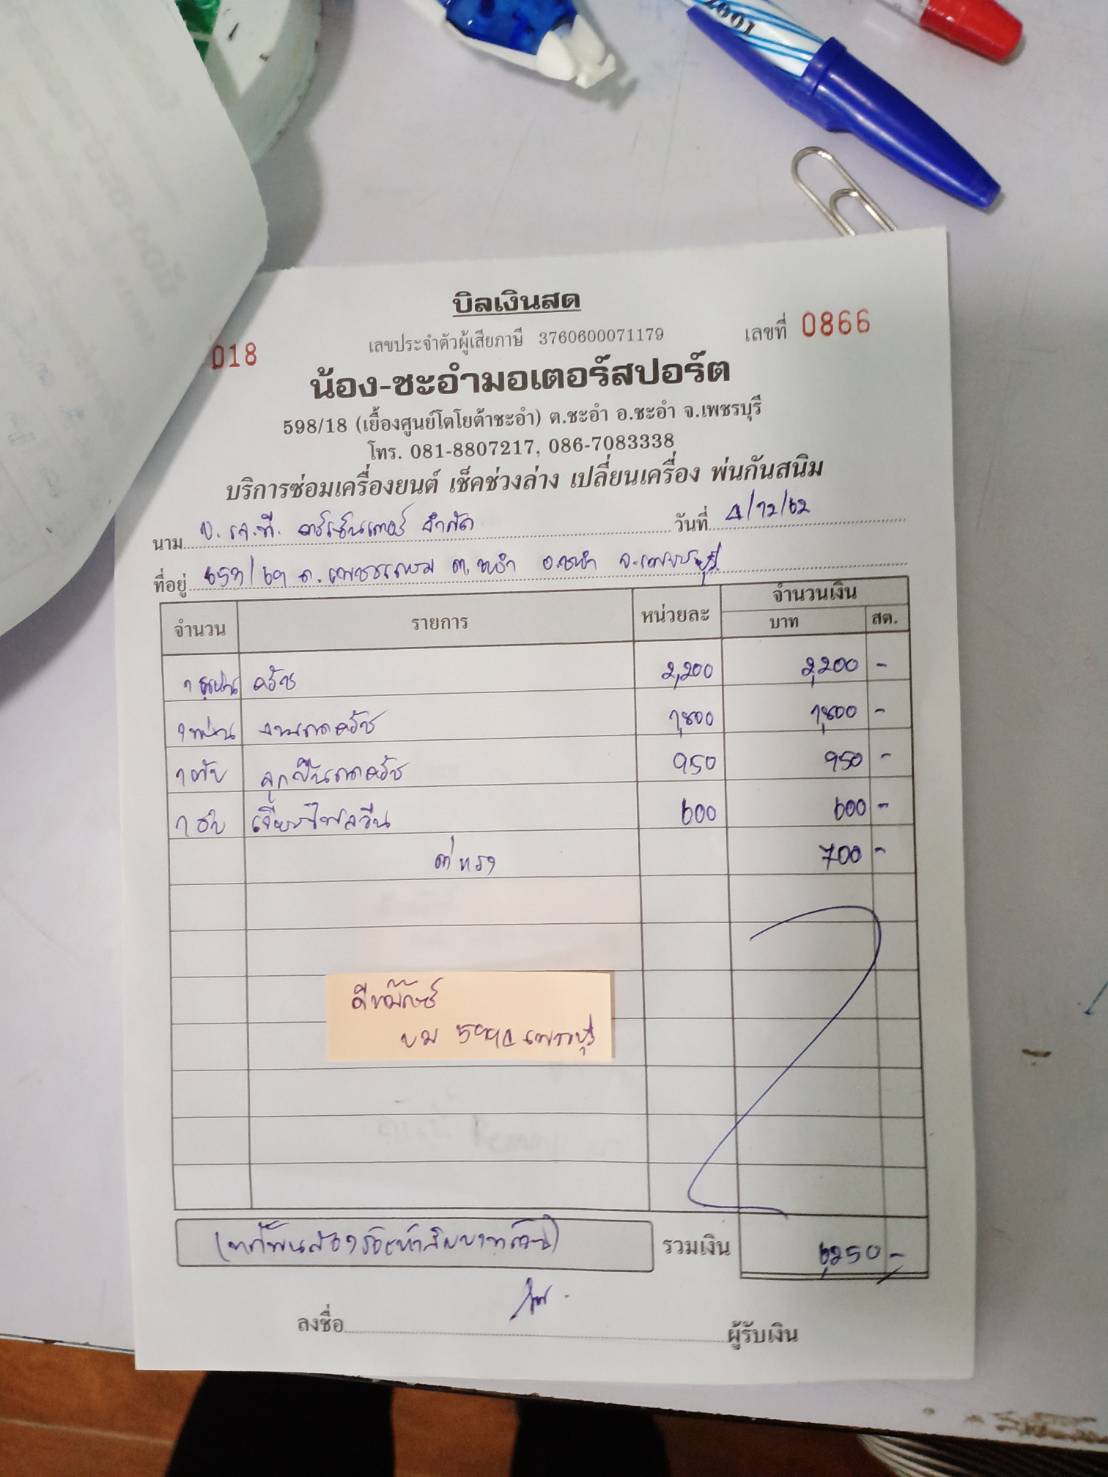 1007
บิลเงินสด
เลขประจำตัวผู้เสียภาษี 3760600071179
เลขที่ 0866
018
น้อง-ชะอำมอเตอร์สปอร์ต
598/18 (เยื้องศูนย์โตโยต้าชะอำ) ต.ชะอำ อ.ชะอำ จ.เพชรบุรี
โทร. 081-8807217, 086-7083338
บริการซ่อมเครื่องยนต์ เช็คช่วงล่าง เปลี่ยนเครื่อง พ่นกันสนิม
นาม บ. เจ.ที. จำกัด วันที่ 4/12/62
ที่อยู่ ถ.เพชรเกษม ต.ชะอำ อ.ชะอำ จ.เพชรบุรี
จำนวน รายการ หน่วยละ จำนวนเงิน
บาท สต.
1 ครัช 2,200 2,200 -
1 แผ่น จานกดครัช 1,800 1,800 -
1 ตับ ลูกปืนกดครัช 950 950 -
1 เจียรไฟลวีล 600 600 -
ค่าแรง 700 -
เพชรบุรี
(หกพันสองร้อยห้าสิบบาทถ้วน) รวมเงิน 6,250 -
ลงชื่อ ผู้รับเงิน